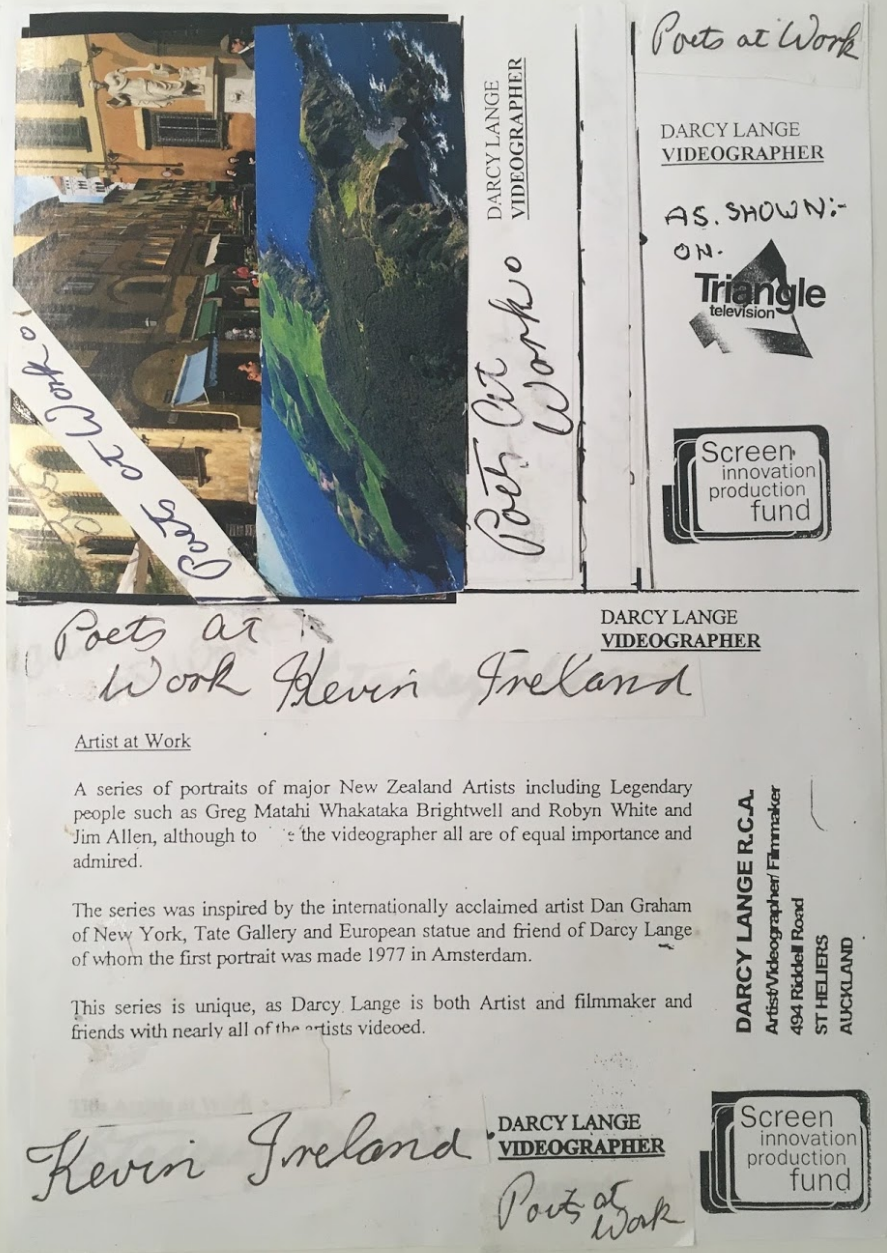 Poets at Work
DARCY LANGE
VIDEOGRAPHER
Poets at
Work
Poets at Work
DARCY LANGE
VIDEOGRAPHER
AS. SHOWN:-
ON.
Triangle
television
Screen
innovation
production
fund
Poets at
Work Kevin Ireland
DARCY LANGE
VIDEOGRAPHER
Artist at Work
A series of portraits of major New Zealand Artists including Legendary
people such as Greg Matahi Whakataka Brightwell and Robyn White and
Jim Allen, although to the videographer all are of equal importance and
admired.
The series was inspired by the internationally acclaimed artist Dan Graham
of New York, Tate Gallery and European statue and friend of Darcy Lange
of whom the first portrait was made 1977 in Amsterdam.
This series is unique, as Darcy Lange is both Artist and filmmaker and
friends with nearly all of the artists videoed.
DARCY LANGE R.C.A.
Artist/Videographer/Filmmaker
494 Riddell Road
ST HELIERS
AUCKLAND
Kevin Ireland
DARCY LANGE
VIDEOGRAPHER
Poets at
Work
Screen
innovation
production
fund